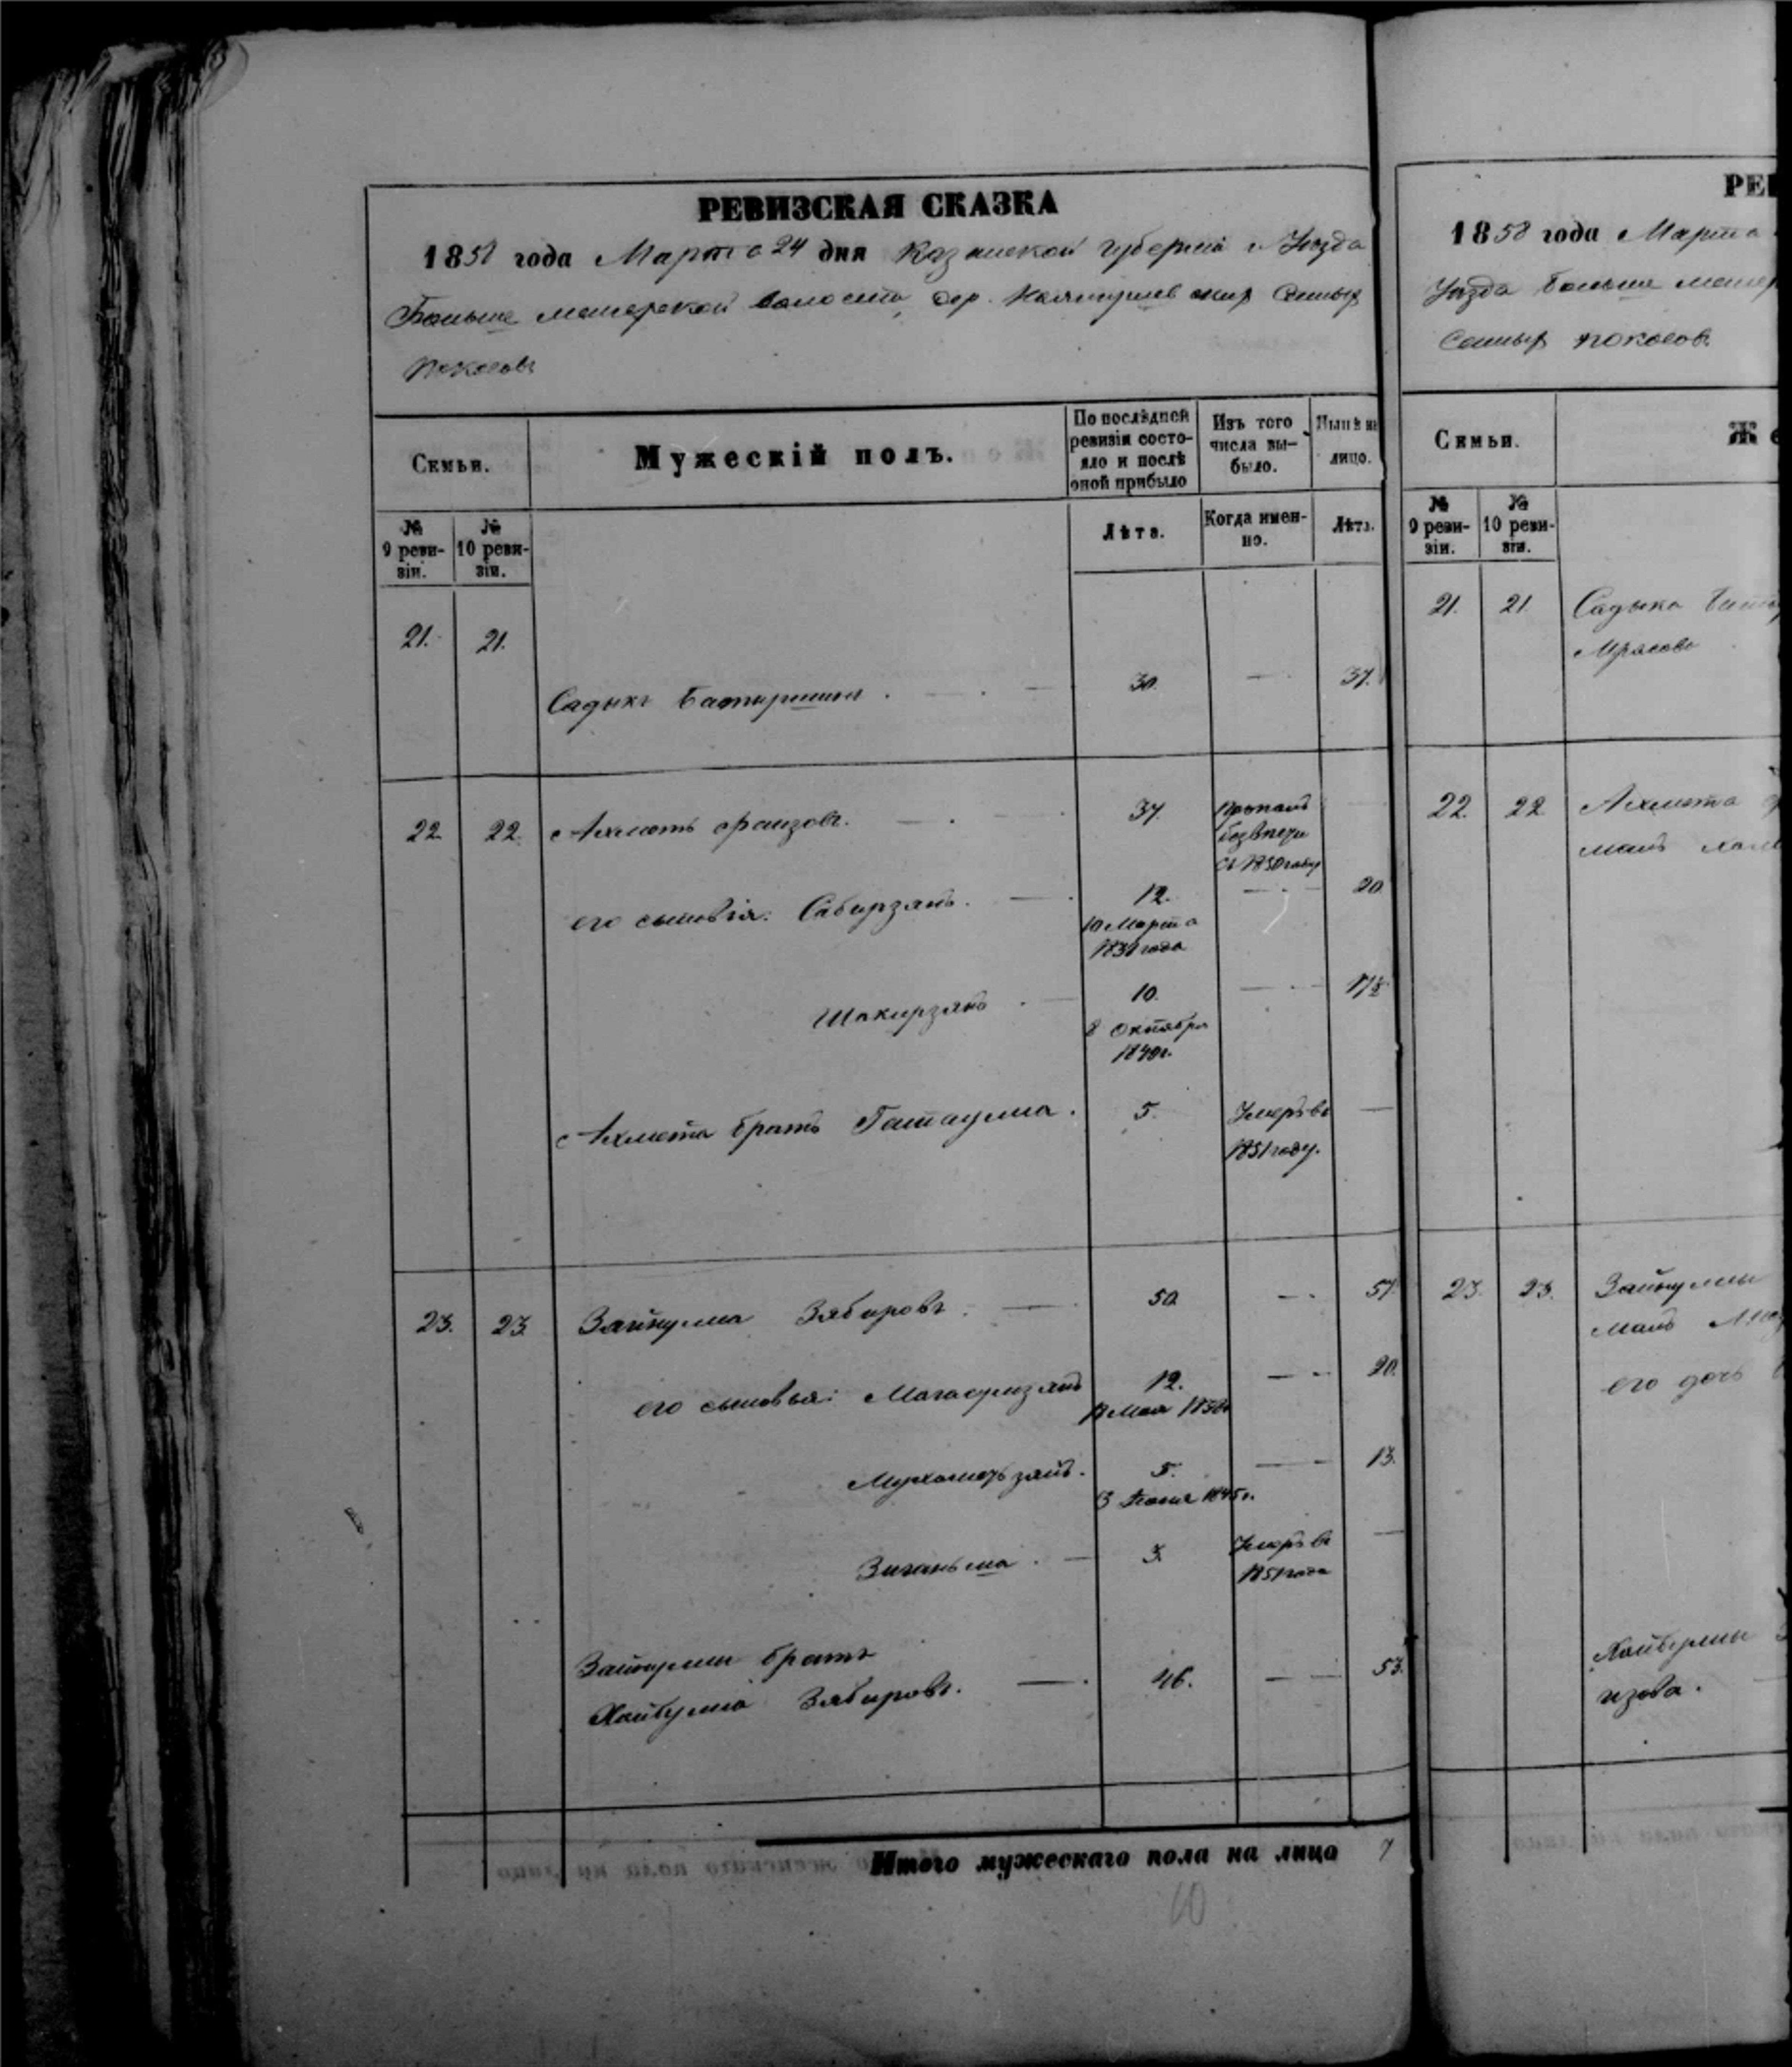 РЕВИЗСКАЯ СКАЗКА
1858 года Марта 24 дня Казанской губернiи и Уѣзда
Больше менгерской волости, дер.
покосовъ
Скмьи.
Мужескій полъ.
По послѣдней ревизіи состо-
яло и послѣ
оной прибыло
Изъ того
числа вы-
было.
Нынѣ на
лицо.
№
9 реви-
зіи.
№
10 реви-
зіи.
Лѣта.
Когда имен-
но.
Лѣта.
21. 21.
Садыкъ Батыршинъ . 30. — 37.
22. 22. Ахметъ Фаизовъ. — 37. Пропалъ
безвѣсти
съ 1850 году
его сыновья: Сабирзянъ. — 12. — 20.
10 Марта
1838 года
Шакирзянъ . — 10. — 17½
8 Октября
1840 г.
Ахмета братъ Гатаулла . 5. Умеръ въ —
1851 году.
23. 23. Зайнулла Зябировъ . — 50. — 57.
его сыновья: 12. — 20.
Мая 1838
Мухаметзянъ. 5. — 13.
1845 г.
Зиганьша . — 3. Умеръ въ —
1851 года
Зайнуллы братъ
Хайбулла Зябировъ. — 46. — 53.
Итого мужескаго пола на лицо 7
10
РЕ
1858 года Марта
Уѣзда Больше менгер
покосовъ
Скмьи.
Же
№
9 реви-
зіи.
№
10 реви-
зіи.
21. 21. Садыка Баты
22. 22. Ахмета
23. 23. Зайнуллы
его дочь
Хайбуллы
изова.